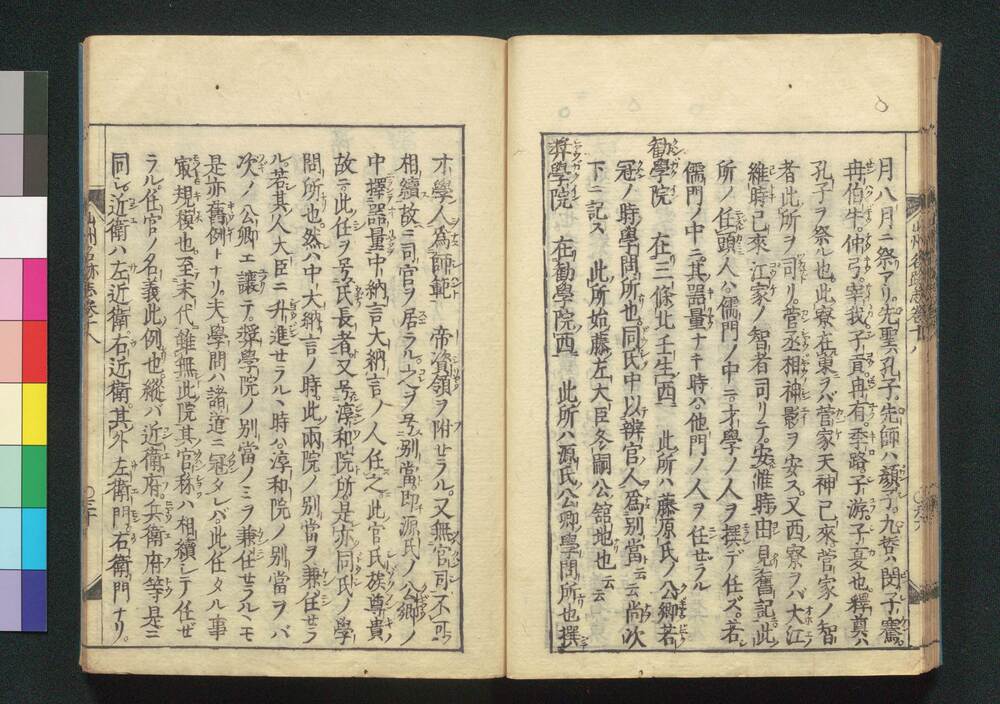 月八月ニ祭アリ。先聖ハ孔子。先師ハ顔子。九哲ハ閔子騫
冉伯牛。仲弓。宰我。子貢。冉有。季路。子游。子夏也。釋奠ハ
孔子ヲ祭ル也。此寮在東ヲバ菅家天神已來菅家ノ智
者此所ヲ司リ。菅丞相神影ヲ安ス。又西寮ヲバ大江
維時已來江家ノ智者司リテ。安惟時由見舊記。此
所ノ任頭人ハ儒門ノ中ニ。才學ノ人ヲ撰デ任ズ。若
儒門ノ中ニ。其器量ナキ時ハ。他門ノ人ヲ任セラル
勸學院 在三條北壬生西 此所ハ藤原氏ノ公卿若
冠ノ時學問所也。同氏中以辨官人爲別當云云尚次
下ニ記ス 此所始藤左大臣冬嗣公舘地也云云
奬學院 在勸學院西 此所ハ源氏公卿學問所也撰
才學人爲師範 帝資領ヲ附セラル。又無官司不可
相續故ニ司官ヲ居ラル之ヲ号別當。即源氏ノ公卿ノ
中擇器量中納言大納言ノ人任之此官氏族尊貴
故ニ此任ヲ号氏長者又号淳和院所。是亦同氏ノ學
問所也。然ハ中大納言ノ時。此兩院ノ別當ヲ兼任セラ
ル。若其人大臣ニ升進セラルハ時ハ。淳和院ノ別當ヲバ
次ノ公卿エ讓テ。奬學院ノ別當ノミヲ兼任セラル、モ
是亦舊例トナリ。夫學問ハ諸道ニ冠タレバ。此任タル事
㝡規模也。至末代雖無此院其官称ハ相續シテ任ゼ
ラル。任官ノ名義此例也。縱バ近衛府。兵衛府等是ニ
同し。近衛ハ左近衛。右近衛。其外左衛門右衛門ナリ。
山州名跡志卷十八